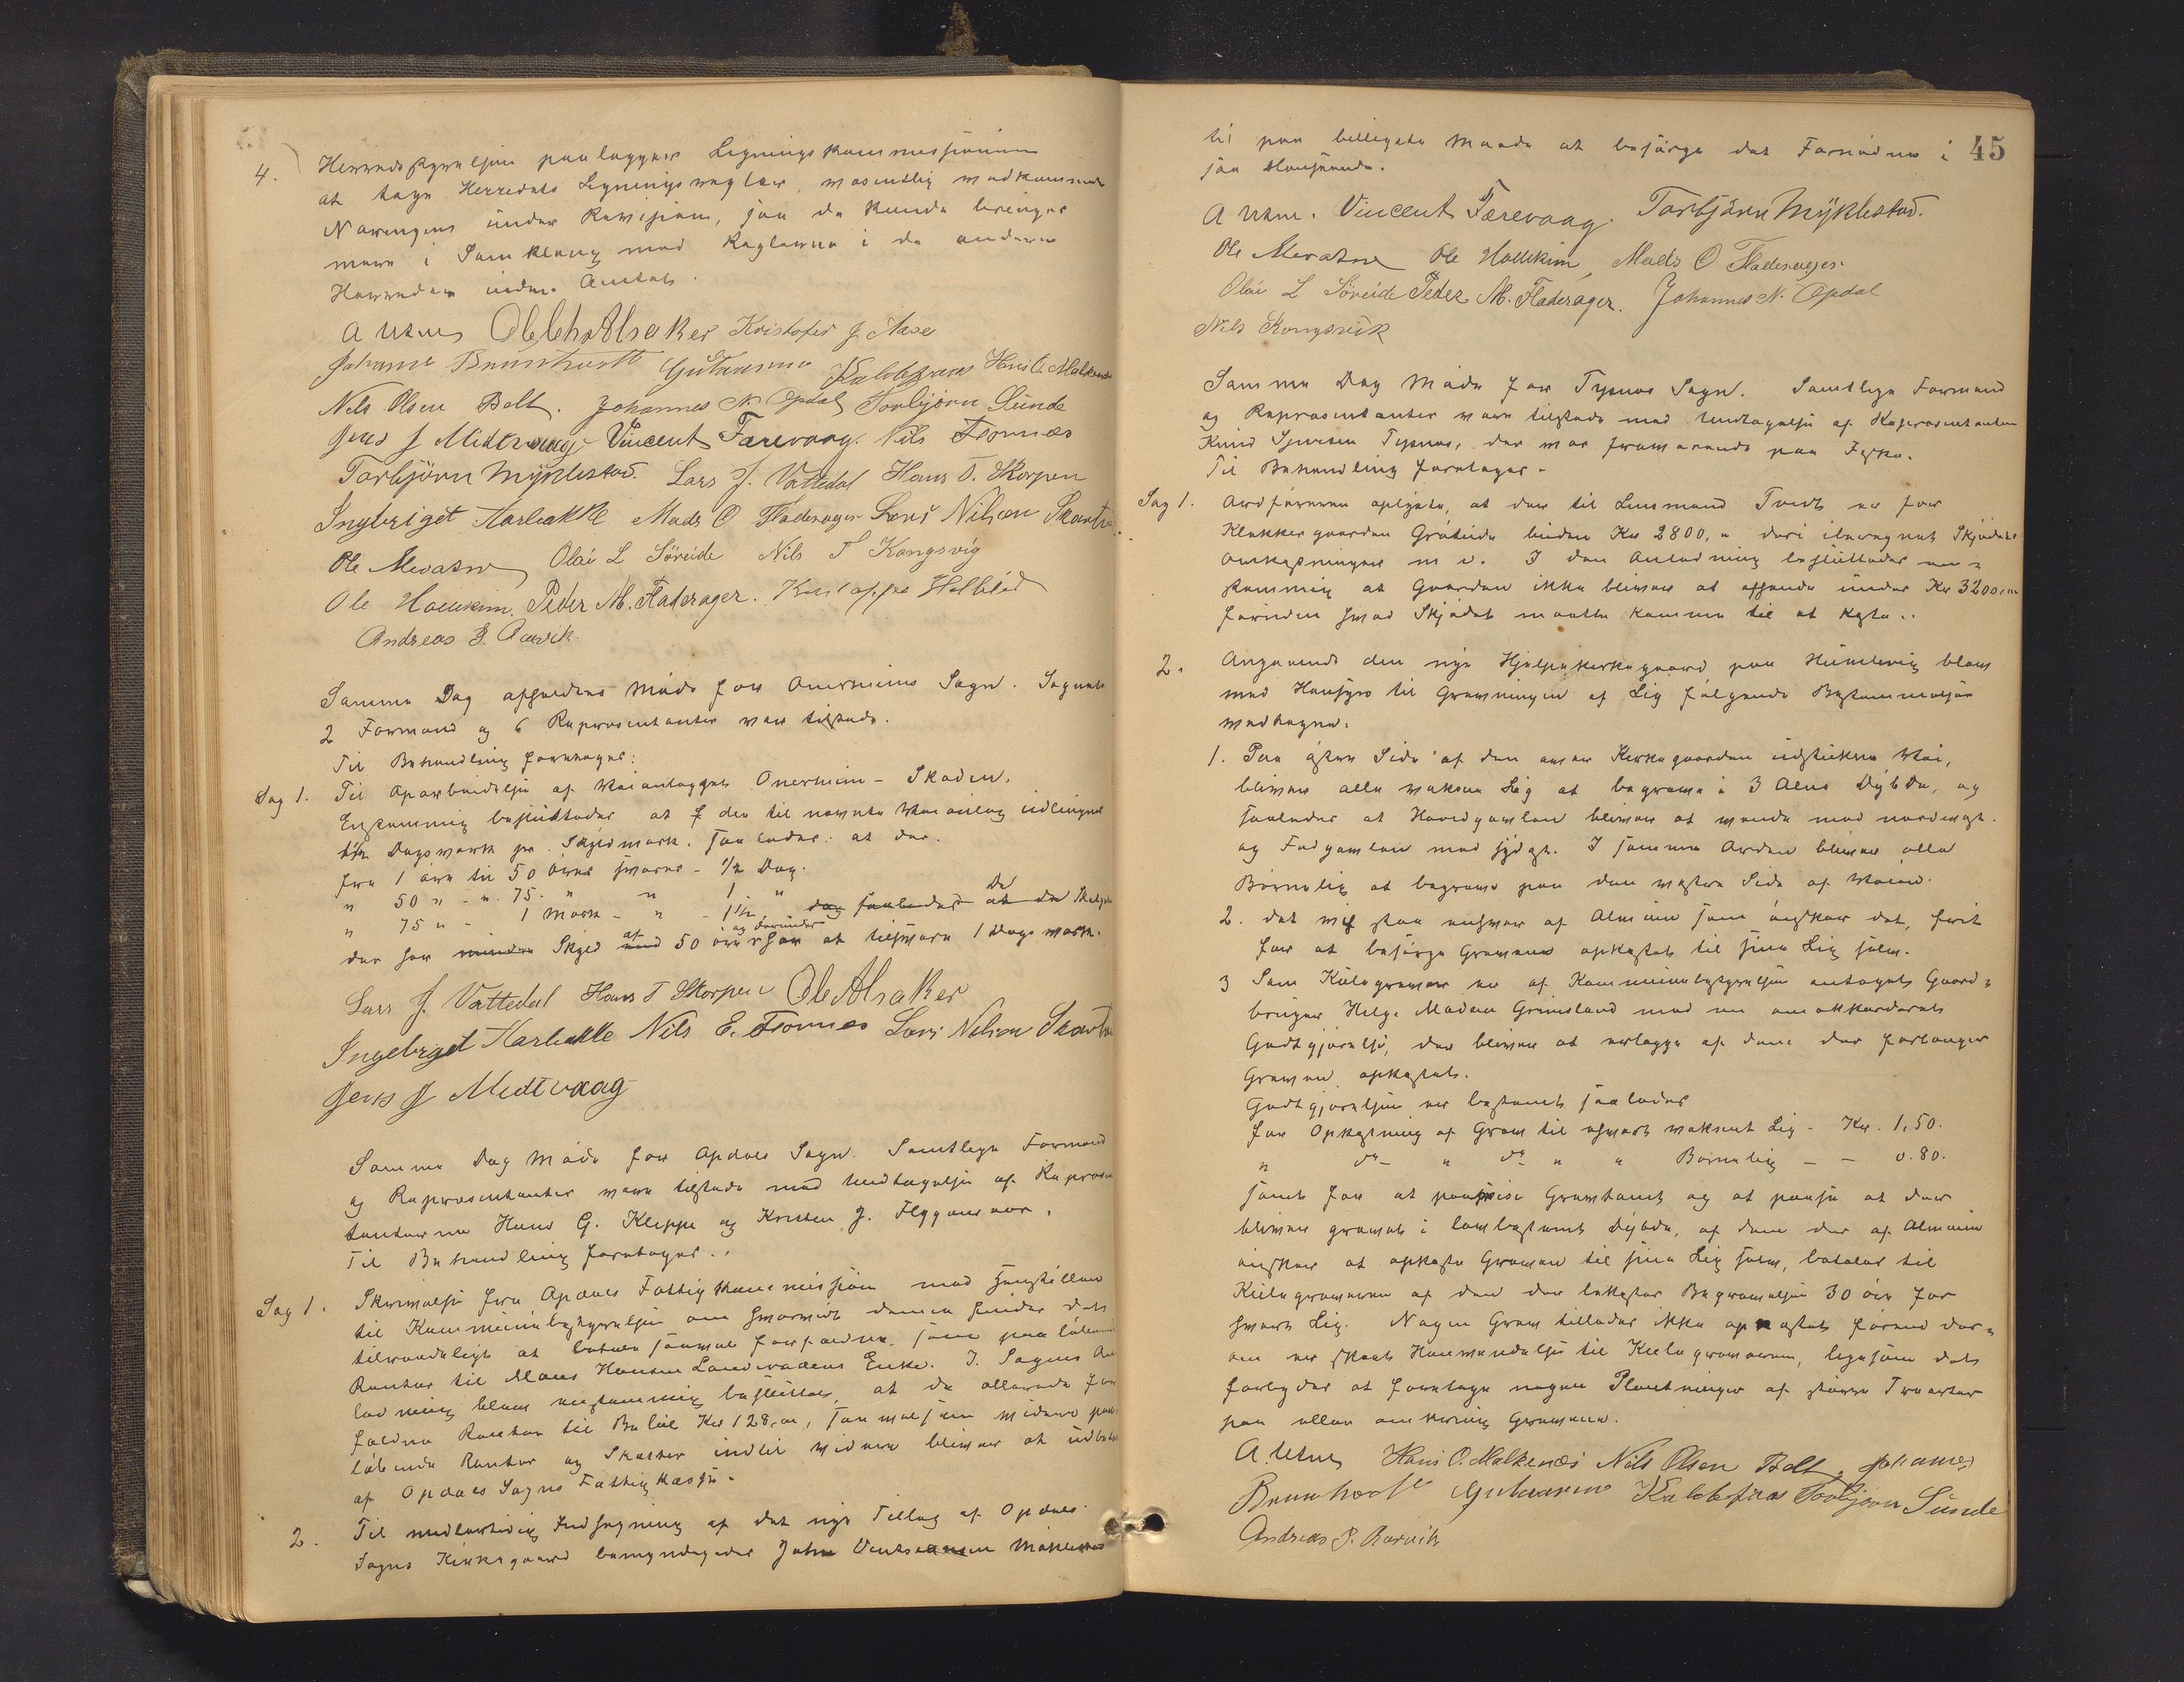 4. Herredsstyrelsen paalægger Ligningskommissionen
at tage Herredets Ligningsregler, vesentlig vedkommende
Næringen under Revision, saa de kunde bringes
mere i Samklang med Reglerne i de andre
Herreder inden Amtet.
A Utne Ole Chr Alsaker Kristofer J. Aase
Johannes Brunthveit Hans O. Malkenes
Nils Olsen Belt. Johannes N. Opdal Torbjörn Sunde
Jens J Midtvaag Vincent Færevaag. Nils Tromnæs
Torbjörn Myklestad. Lars J. Vattedal Hans T. Skorpen
Ingebriget Aarbakke Mads O Fladerager Lars Nilsen
Ole Mevatne Olai L Söreide Nils T Kongsvig
Ole Holleкim. Peder M. Fladerager.
Andreas P. Rørvik
Samme Dag afholdtes Möde for Onereims Sogn. Sognets
2 Formænd og 6 Repræsentanter var tilstede.
Til Behandling foretoges:
Sag 1. Til Oparbeidelse af Veianlægget Onereim - Skaden.
Enstemmig besluttedes at der til nævnte Veianlæg udlignes
Dagsværk pr. Skyldmark, saaledes: at der
fra 1 öre til 50 öres svares - 1/2 Dag.
" 50 " - " 75. " " 1 "
" 75 " - 1 Mark - " - 1 1/2 " dog saaledes at de De
der har mindre Skyld af 50 öre og derunder har at tilsvare 1 Dagsværk.
Lars J. Vattedal Hans T Skorpen Ole Alsaker
Ingebrigt Aarbakke Nils E. Tromnes Lars Nilsen
Jens J Midtvaag
Samme Dag Möde for Opdals Sogn. Samtlige Formænd
og Repræsentanter vare tilstede med Undtagelse af Repræsen
tanterne Hans G. Kleppe og Kristen J. Flygansvær.
Til Behandling foretoges.
Sag 1. Skrivelse fra Opdals Fattigkommission med henstillen
til Kommunebestyrelsen om hvorvidt denne finder det
tilraadeligt at betale saavel forfaldne som paalöbende
Renter til Mons Hansen Landevadens Enke. I Sagens An
ledning blev enstemmig besluttet, at de allerede for
faldne Renter til Beløb Kr 128,00, saavelsom videre paa
löbende Renter og Skatter indtil videre bliver at udbetale
af Opdals Sogns Fattigkasse.
2. Til midlertidig Indhegning af det nye Tillæg af Opdals
Sogns Kirkegaard bemyndiges John
45
til paa billigste Maade at besörge det Fornödne i
saa Henseende.
A Utne. Vincent Færevaag. Torbjörn Myklestad.
Ole Mevatne Ole Mads O Fladerager
Olai L Söreide Peder M. Fladerager. Johannes N. Opdal
Nils Kongsvik
Samme Dag Möde for Tysnes Sogn. Samtlige Formænd
og Repræsentanter vare tilstede med Undtagelse af Repræsentanten
Knud Sjursen Tysnes, der var fraværende paa Fiske.
Til Behandling foretoges.
Sag 1. Ordföreren oplyste, at der til Lensmand Tvedt er for
Klokkergaarden Gröteide buden Kr 2800,00 deri iberegnet Skjödets
Omkostninger m. v. I den Anledning besluttedes en=
stemmig at Gaarden ikke bliver at afhænde under Kr 3200,00
foruden hvad Skjödet maatte komme til at koste.
2. Angaaende den nye Hjælpekirkegaard paa Humlevig blev
med Hensyn til Gravningen af Lig fölgende Bestemmelser
vedtagne:
1. Paa östre Side af den over Kirkegaarden udstukne Vei,
bliver alle voksne Lig at begrave i 3 Alens Dybde, og
saaledes at Hovedgavlen bliver at vende mod nordvest.
og Fodgavlen mod sydöst. I samme Orden bliver alle
Börnelig at begrave paa den vestre Side af Veien.
2. det vil staa enhver af Almuen som önsker det, frit
for at besörge Graven opkastet til sine Lig selv.
3 Som Kulegraver er af Kommunebestyrelsen antaget Gaard=
bruger Helge Madsen Grimsland med en omakkorderet
Godtgjörelse, der bliver at erlægge af dem der forlanger
Graven opkastet.
Godtgjörelsen er bestemt saaledes
for Opkastning af Grav til ethvert voksent Lig - Kr. 1,50.
" do - " do " " Börnelig - - 0.80.
samt for at paavise Gravtomt og at paase at der
bliver gravet i lovbestemt dybde, af dem der af Almuen
önsker at opkaste Graven til sine Lig selv, betales til
Kulegraveren af den der bekoster Begravelsen 30 öre for
hvert Lig. Nogen Grav tillades ikke opkastet förend der=
om er skeet Henvendelse til Kulegraveren, ligesom det
forbydes at foretage nogen Plantninger af större Trearter
paa eller omkring Gravene.
A. Utne Hans O. Malkenes Nils Olsen Belt. Johannes
Brunthveit Torbjörn Sunde
Andreas P. Rørvik